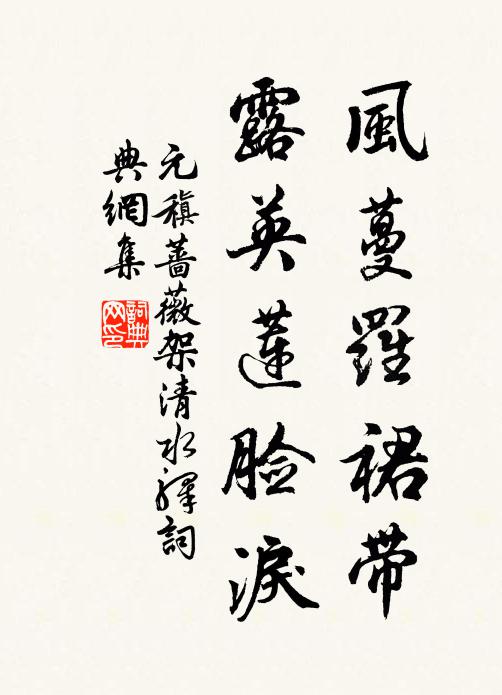 風蔓羅裙带
露英蓮脸淚
元稹薔薇架清水驛詞
典網集
詞典网印